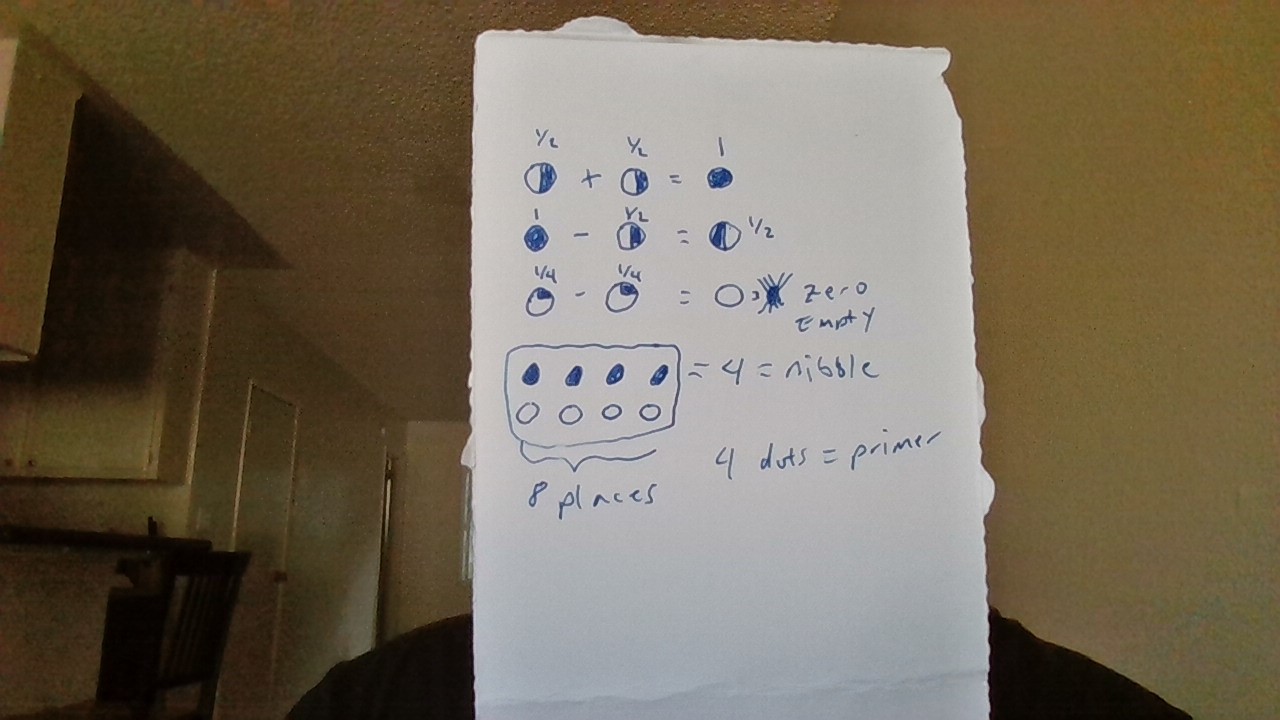 1/2 1/2 1
+ =
1 1/2
- = 1/2
1/4 1/4
- = zero
Empty
= 4 = nibble
4 dots = primer
8 places